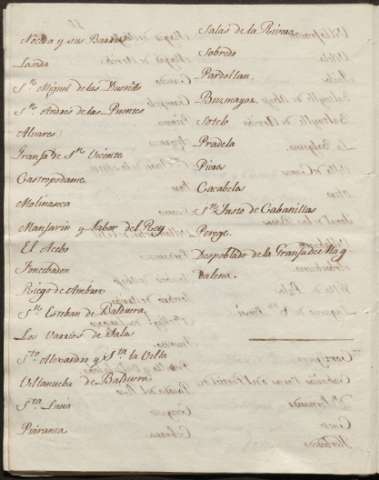 Noceda y sus Barrios
Landa
Sn. Miguel de las Dueñas
Sn. Andrés de las Puentes
Alvares
Granja de Sn. Vicente
Castropodame
Molinaseca
Manjarin y Labor del Rey
El Acebo
Foncebadon
Riego de Ambros
Sn. Esteban de Balduera
Los Varrios de Sala
Sto. Alexandro y Sta. la Villa
Villanueba de Balduera
Sta. Lucia
Peiranza
Salas de la Rivera
Sobredo
Pardollan
Busmayor
Sotelo
Pradela
Pieros
Cacabelos
Sn. Justo de Cabanillas
Pereje
Despoblado de la Granja de Mag
dalena